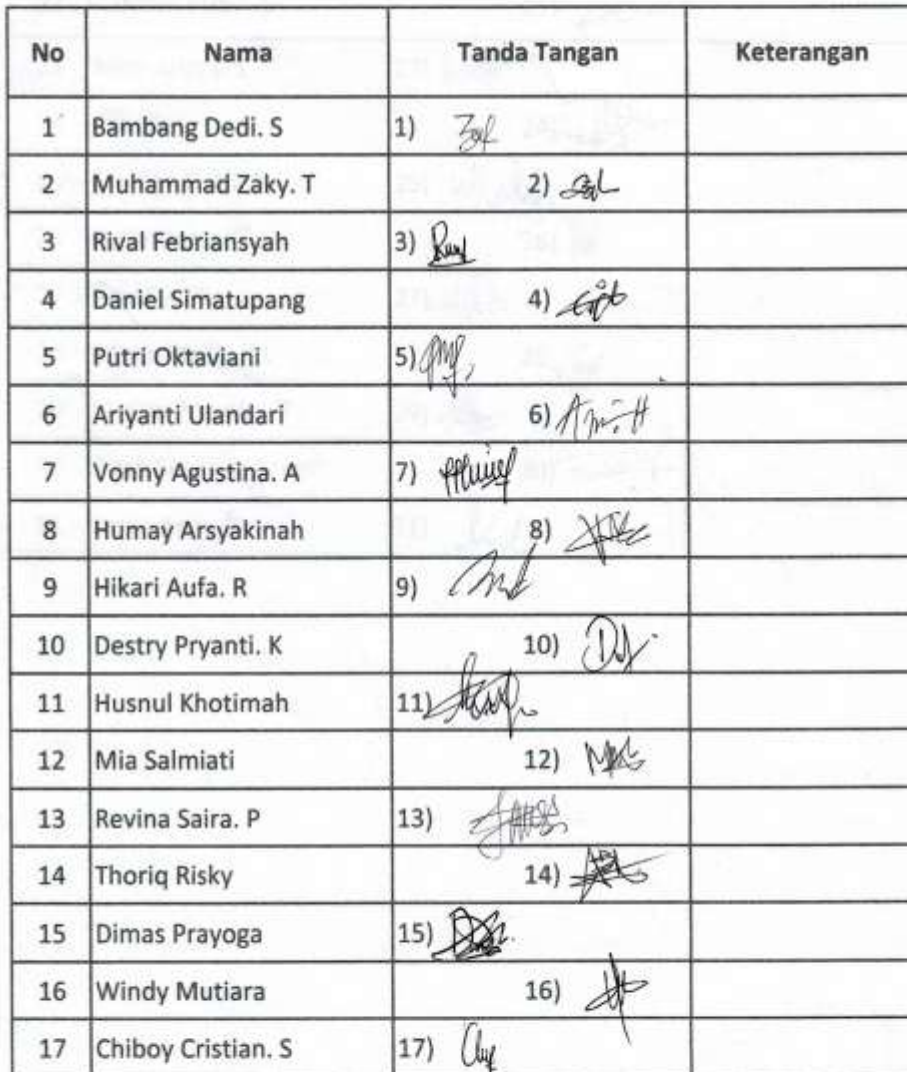 No Nama Tanda Tangan Keterangan
1 Bambang Dedi. S 1)
2 Muhammad Zaky. T 2)
3 Rival Febriansyah 3)
4 Daniel Simatupang 4)
5 Putri Oktaviani 5)
6 Ariyanti Ulandari 6)
7 Vonny Agustina. A 7)
8 Humay Arsyakinah 8)
9 Hikari Aufa. R 9)
10 Destry Pryanti. K 10)
11 Husnul Khotimah 11)
12 Mia Salmiati 12)
13 Revina Saira. P 13)
14 Thoriq Risky 14)
15 Dimas Prayoga 15)
16 Windy Mutiara 16)
17 Chiboy Cristian. S 17)